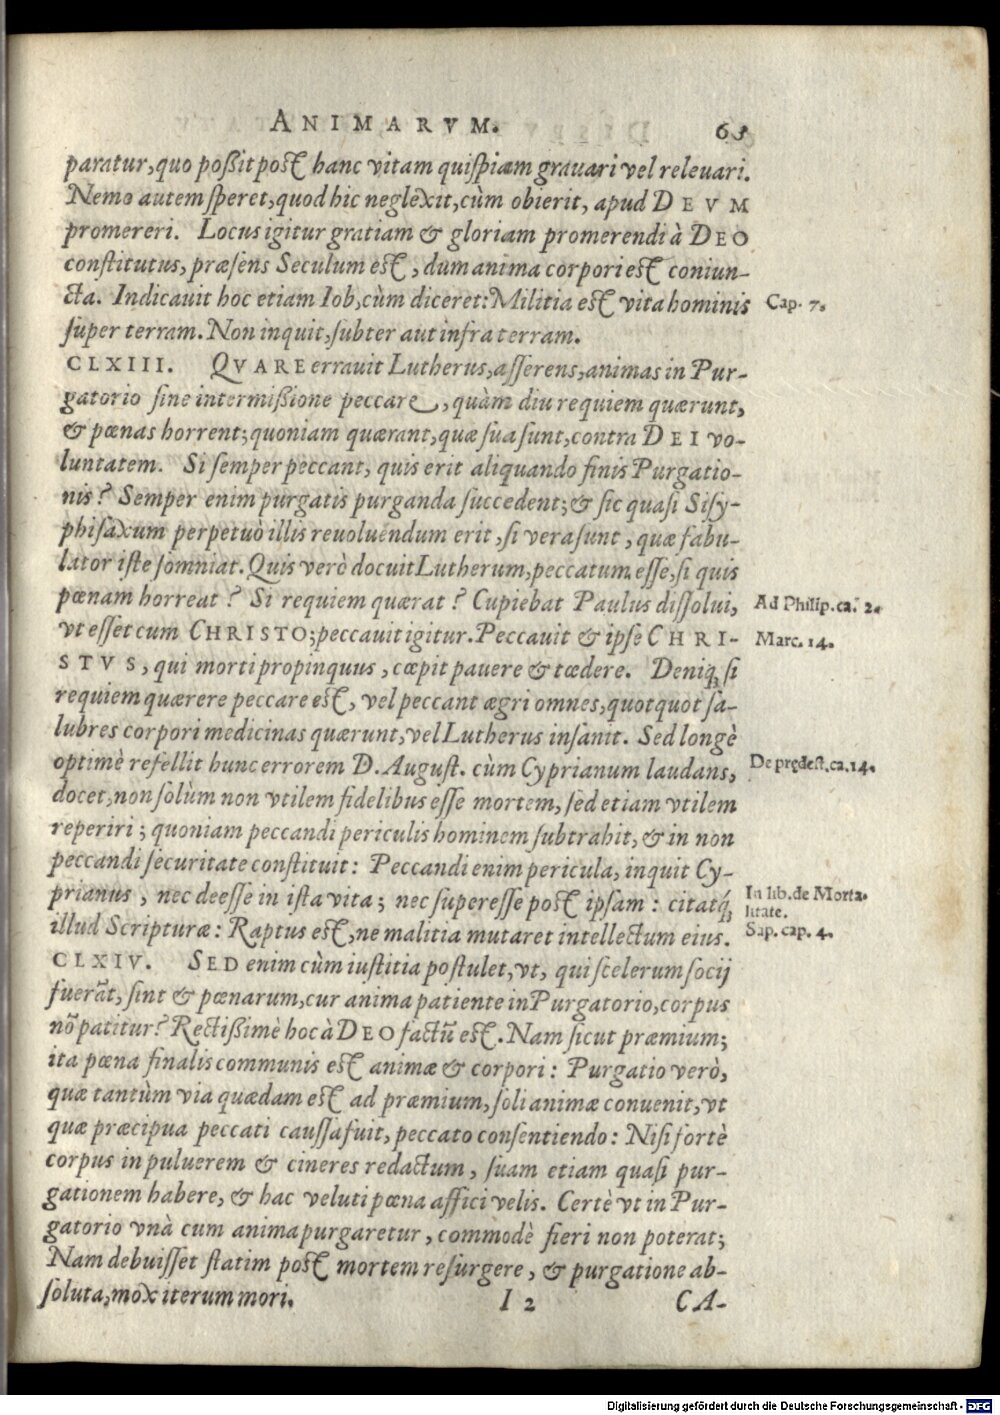 ANIMARVM. 63
paratur, quo poßit post hanc vitam quispiam grauari vel releuari.
Nemo autem speret, quod hic neglexit, cùm obierit, apud DEVM
promereri. Locus igitur gratiam & gloriam promerendi à DEO
constitutus, præsens Seculum est, dum anima corpori est coniun-
cta. Indicauit hoc etiam Iob, cùm diceret: Militia est vita hominis
Cap. 7.
super terram. Non inquit, subter aut infra terram.
CLXIII. QVARE errauit Lutherus, asserens, animas in Pur-
gatorio sine intermißione peccare, quàm diu requiem quærunt,
& pœnas horrent; quoniam quærant, quæ sua sunt, contra DEI vo-
luntatem. Si semper peccant, quis erit aliquando finis Purgatio-
nis? Semper enim purgatis purganda succedent; & sic quasi Sisy-
phi saxum perpetuò illis reuoluendum erit, si vera sunt, quæ fabu-
lator iste somniat. Quis verò docuit Lutherum, peccatum esse, si quis
pœnam horreat? Si requiem quærat? Cupiebat Paulus dissolui,
Ad Philip. ca. 2.
vt esset cum CHRISTO; peccauit igitur. Peccauit & ipse CHRI-
Marc. 14.
STVS, qui morti propinquus, cœpit pauere & tædere. Deniq; si
requiem quærere peccare est, vel peccant ægri omnes, quotquot sa-
lubres corpori medicinas quærunt, vel Lutherus insanit. Sed longè
optimè refellit hunc errorem D. August. cùm Cyprianum laudans,
De prędest. ca. 14.
docet, non solùm non vtilem fidelibus esse mortem, sed etiam vtilem
reperiri; quoniam peccandi periculis hominem subtrahit, & in non
peccandi securitate constituit: Peccandi enim pericula, inquit Cy-
prianus, nec deesse in ista vita; nec superesse post ipsam: citatq́;
In lib. de Morta-
litate.
illud Scripturæ: Raptus est, ne malitia mutaret intellectum eius.
Sap. cap. 4.
CLXIV. SED enim cùm iustitia postulet, vt, qui scelerum socij
fuerãt, sint & pœnarum, cur anima patiente in Purgatorio, corpus
nõ patitur? Rectißimè hoc à DEO factũ est. Nam sicut præmium;
ita pœna finalis communis est animæ & corpori: Purgatio verò,
quæ tantùm via quædam est ad præmium, soli animæ conuenit, vt
quæ præcipua peccati caussa fuit, peccato consentiendo: Nisi fortè
corpus in puluerem & cineres redactum, suam etiam quasi pur-
gationem habere, & hac veluti pœna affici velis. Certè vt in Pur-
gatorio vnà cum anima purgaretur, commodè fieri non poterat;
Nam debuisset statim post mortem resurgere, & purgatione ab-
soluta, mox iterum mori.
I 2 CA-
Digitalisierung gefördert durch die Deutsche Forschungsgemeinschaft - DFG